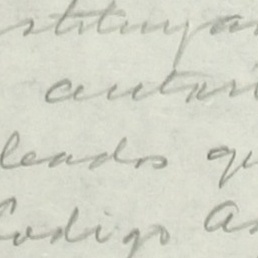 stituya
autori
leados qu
Codigo A